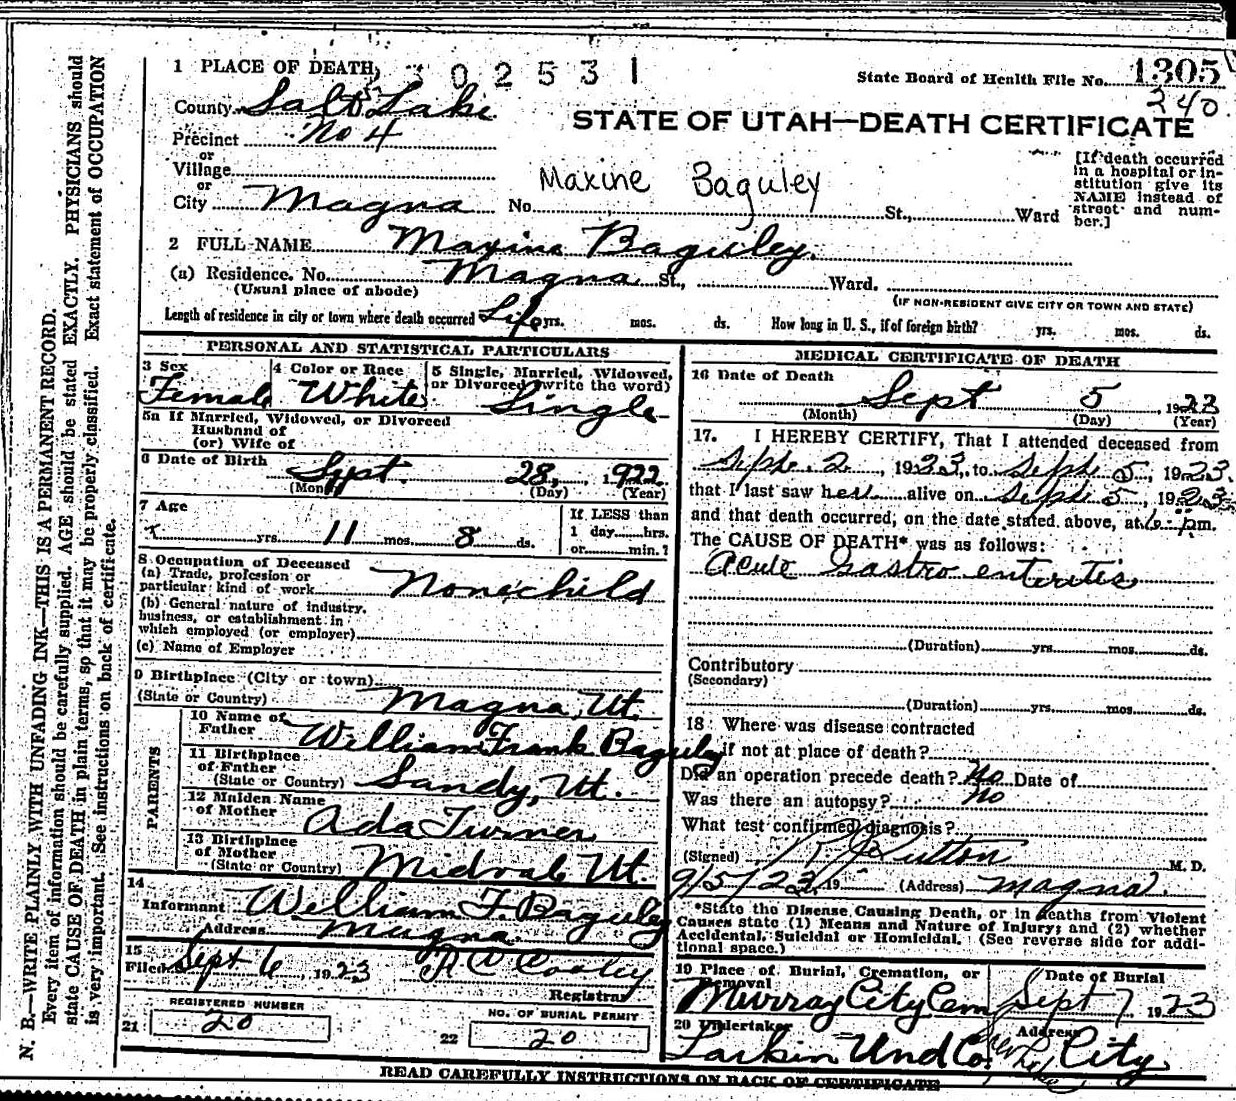 1 PLACE OF DEATH 2302531 State Board of Health File No. 1305
240
County Salt Lake
STATE OF UTAH—DEATH CERTIFICATE
Precinct No 4
or
Village
or
City Magna No. St., Ward
Maxine Baguley
[If death occurred in a hospital or institution give its NAME instead of street and number.]
2 FULL NAME Maxine Baguley.
(a) Residence. No. Magna St., Ward.
(Usual place of abode) (IF NON-RESIDENT GIVE CITY OR TOWN AND STATE)
Length of residence in city or town where death occurred Life yrs. mos. ds. How long in U. S., if of foreign birth? yrs. mos. ds.
PERSONAL AND STATISTICAL PARTICULARS
3 Sex 4 Color or Race 5 Single, Married, Widowed,
or Divorced (write the word)
Female White Single
5a If Married, Widowed, or Divorced
Husband of
(or) Wife of
6 Date of Birth Sept. 28, 1922
(Month) (Day) (Year)
7 Age If LESS than
yrs. 11 mos. 8 ds. 1 day hrs.
or min.?
8 Occupation of Deceased
(a) Trade, profession or
particular kind of work None child
(b) General nature of industry,
business, or establishment in
which employed (or employer)
(c) Name of Employer
9 Birthplace (City or town)
(State or Country) Magna, Ut.
PARENTS
10 Name of
Father William Frank Baguley
11 Birthplace
of Father
(State or Country) Sandy, Ut.
12 Maiden Name
of Mother Ada Turner
13 Birthplace
of Mother
(State or Country) Midvale Ut.
14
Informant William F. Baguley
Address Magna
15
Filed Sept 6, 1923 R C Cooley
Registrar
REGISTERED NUMBER NO. OF BURIAL PERMIT
21 20 22 20
MEDICAL CERTIFICATE OF DEATH
16 Date of Death Sept 5, 1923
(Month) (Day) (Year)
17. I HEREBY CERTIFY, That I attended deceased from
Sept. 2, 1923, to Sept. 5, 1923.
that I last saw her alive on Sept 5, 1923
and that death occurred, on the date stated above, at 6 pm.
The CAUSE OF DEATH* was as follows:
Acute Gastro enterites
(Duration) yrs. mos. ds.
Contributory
(Secondary)
(Duration) yrs. mos. ds.
18 Where was disease contracted
if not at place of death?
Did an operation precede death? No Date of
Was there an autopsy? No
What test confirmed diagnosis?
(Signed) M. D.
9/5/23, 19 (Address) Magna.
*State the Disease Causing Death, or in deaths from Violent
Causes state (1) Means and Nature of Injury; and (2) whether
Accidental, Suicidal or Homicidal. (See reverse side for addi-
tional space.)
19 Place of Burial, Cremation, or Date of Burial
Removal
Murray City Cem Sept 7 1923
20 Undertaker Address
Larkin Und Co. City
READ CAREFULLY INSTRUCTIONS ON BACK OF CERTIFICATE
N. B.—WRITE PLAINLY WITH UNFADING INK—THIS IS A PERMANENT RECORD.
Every item of information should be carefully supplied. AGE should be stated EXACTLY. PHYSICIANS should
state CAUSE OF DEATH in plain terms, so that it may be properly classified. Exact statement of OCCUPATION
is very important. See instructions on back of certificate.